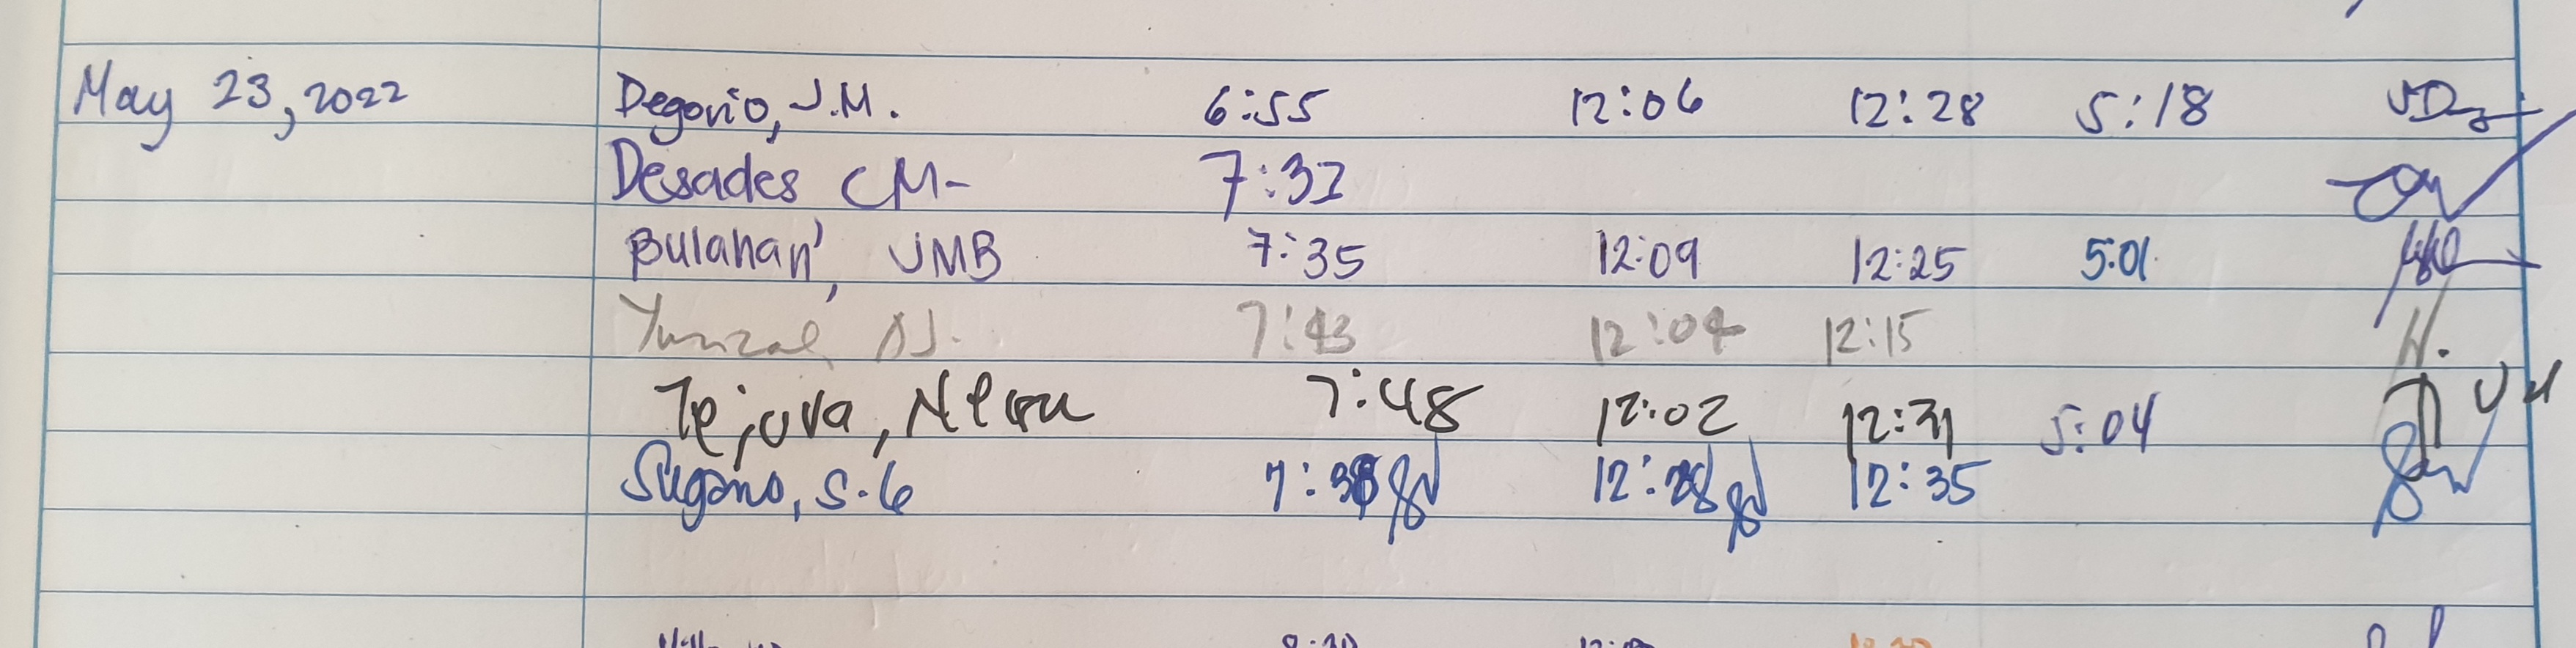 May 23, 2022 Degorio, J.M. 6:55 12:06 12:28 5:18
Desades CM- 7:32
Bulahan, JMB 7:35 12:09 12:25 5:01
7:43 12:04 12:15
Tejova, 7:48 12:02 12:31 5:04
Sugano, S.G 7:38 12:28 12:35